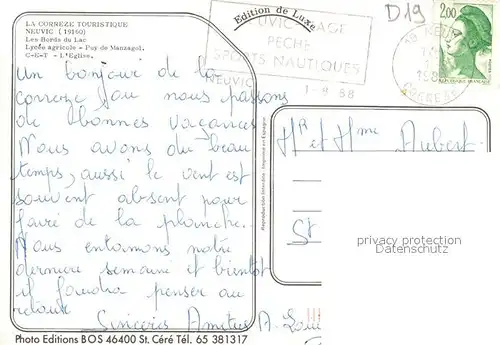 LA CORREZE TOURISTIQUE
NEUVIC (19160)
Les Bords du Lac
Lycée agricole - Puy de Manzagol.
C-E-T - L'Eglise.
Edition de Luxe
PECHE
SPORTS NAUTIQUES
NEUVIC
D19
2,00
CORREZE
Un bonjour de la
correze ou nous passons
de bonnes vacances
Nous avons du beau
temps, aussi le vent est
souvent absent pour
faire de la planche.
Nous entamons notre
derniere semaine et bientot
il faudra penser au
retour
Sinceres Amities A.
Reproduction interdite - Imprimé en Espagne
Mr et Mme Aubert
St
privacy protection
Datenschutz
Photo Editions BOS 46400 St. Céré Tél. 65 381317